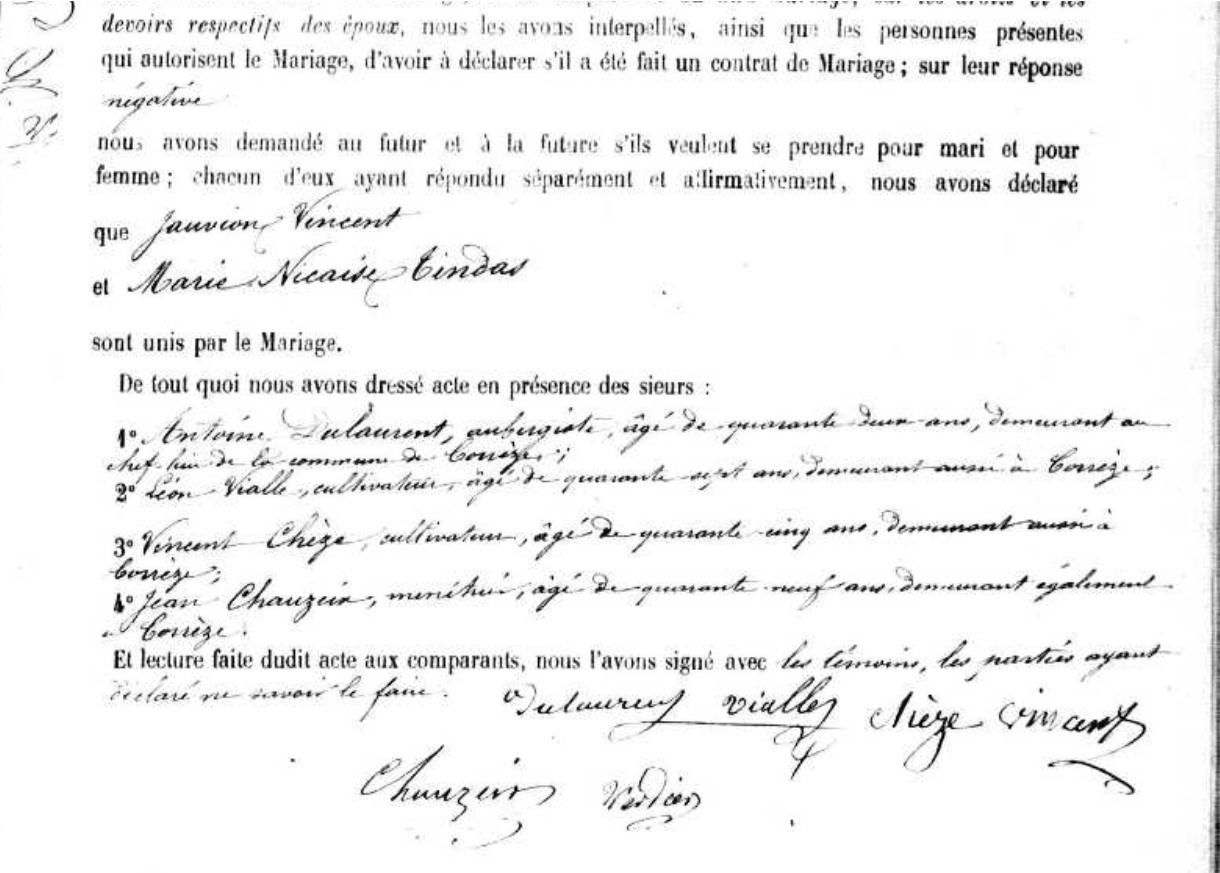 devoirs respectifs des époux, nous les avons interpellés, ainsi que les personnes présentes
qui autorisent le Mariage, d'avoir à déclarer s'il a été fait un contrat de Mariage ; sur leur réponse
négative
nous avons demandé au futur et à la future s'ils veulent se prendre pour mari et pour
femme ; chacun d'eux ayant répondu séparément et affirmativement, nous avons déclaré
que Jauvion Vincent
et Marie Nicaise Tindas
sont unis par le Mariage.
De tout quoi nous avons dressé acte en présence des sieurs :
1° Antoine Dulaurent, aubergiste, âgé de quarante deux ans, demeurant au
chef-lieu de la commune de Corrèze ;
2° Léon Vialle, cultivateur, âgé de quarante sept ans, demeurant aussi à Corrèze ;
3° Vincent Chèze, cultivateur, âgé de quarante cinq ans, demeurant aussi à
Corrèze ;
4° Jean Chauzeix, menétrier, âgé de quarante neuf ans, demeurant également
à Corrèze.
Et lecture faite dudit acte aux comparants, nous l'avons signé avec les témoins, les parties ayant
déclaré ne savoir le faire.
Dulaurent Vialle Chèze Vincent
Chauzeix Verdier